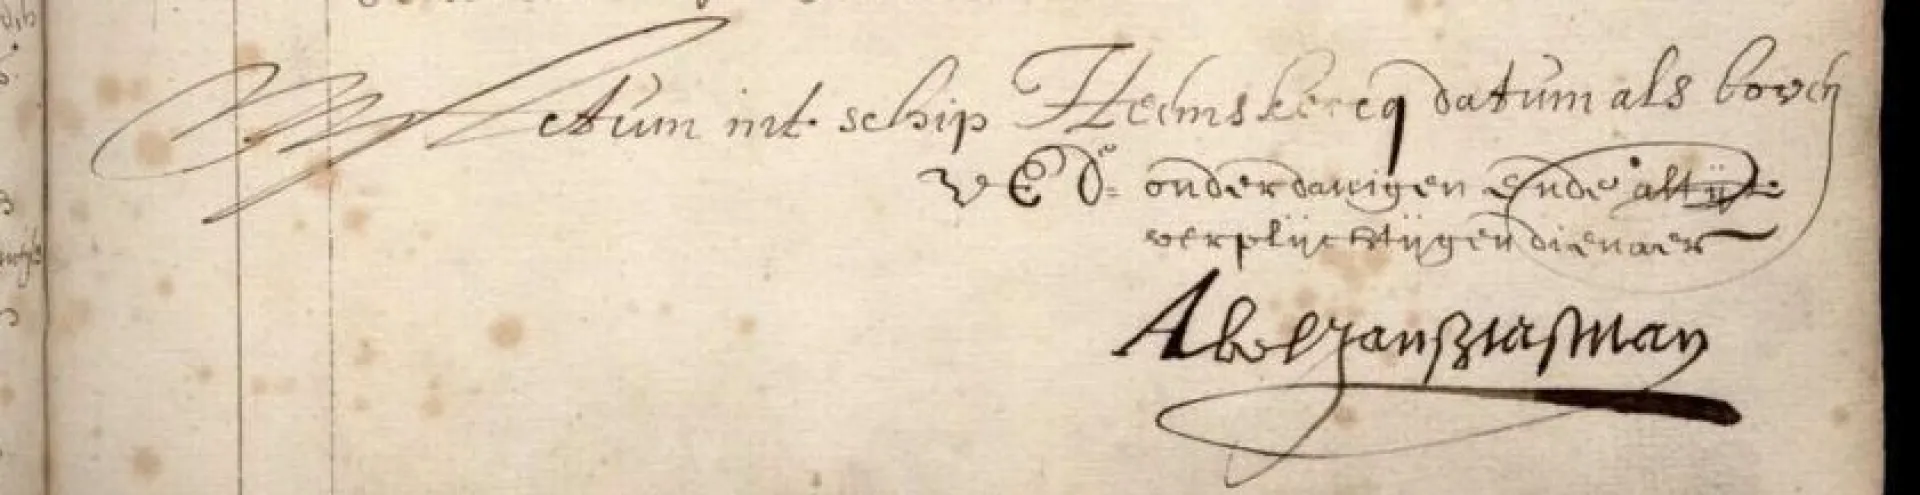 Actum int schip Heemskercq datum als boven
VEd.e onderdanigen ende altijt
verplijchtijgen dienaer
Abel Jansz tasman